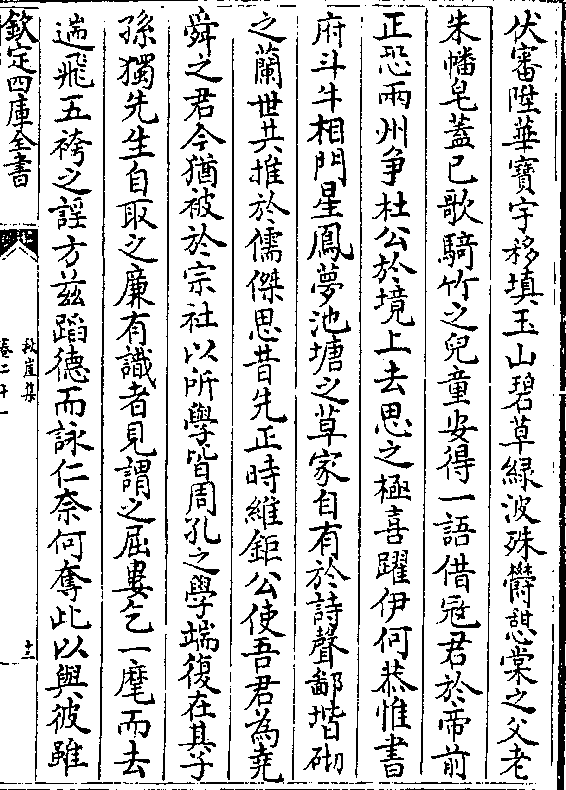 伏審陞華寶宇移填玉山碧草緑波殊欝憇棠之父老
朱幡皂葢已歌騎竹之兒童安得一語借冦君於帝前
正恐兩州争杜公於境上去思之極喜躍伊何恭惟書
府斗牛相門星鳳夢池塘之草家自有於詩聲鄙堦砌
之蘭世共推於儒傑思昔先正時維鉅公使吾君為堯
舜之君今猶被於宗社以所學皆周孔之學端復在其子
孫獨先生自取之亷有識者見謂之屈婁乞一麾而去
遄飛五袴之謡方兹蹈德而詠仁奈何奪此以與彼雖
欽定四庫全書
秋崖集
卷二十一
十二